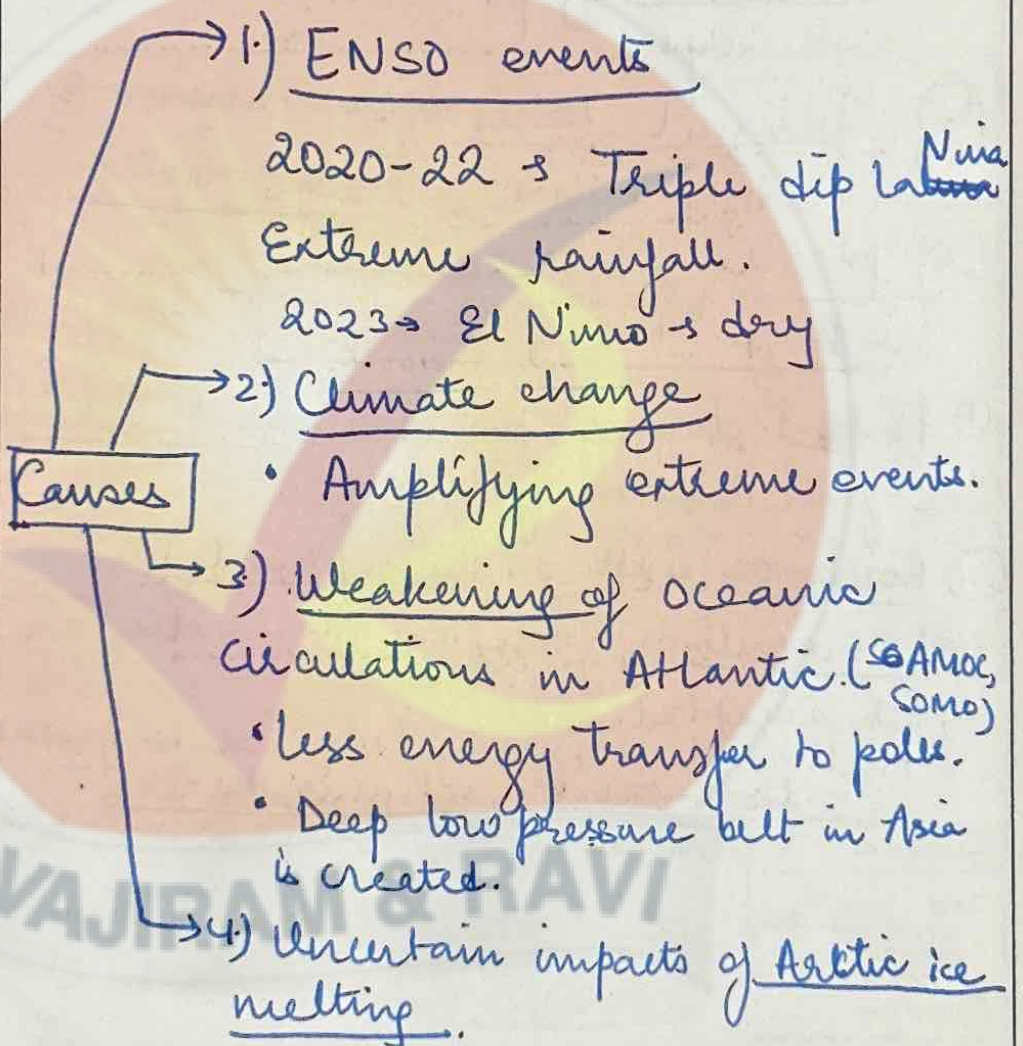 1.) ENSO events
2020-22 → Triple dip La Nina
Extreme rainfall.
2023→ El Nino → dry
2.) Climate change
Causes
• Amplifying extreme events.
3.) Weakening of oceanic
circulations in Atlantic. (AMOC,
SOMO)
• less energy transfer to poles.
• Deep low pressure belt in Asia
is created.
VAJIRAM & RAVI
4.) Uncertain impacts of Arctic ice
melting.